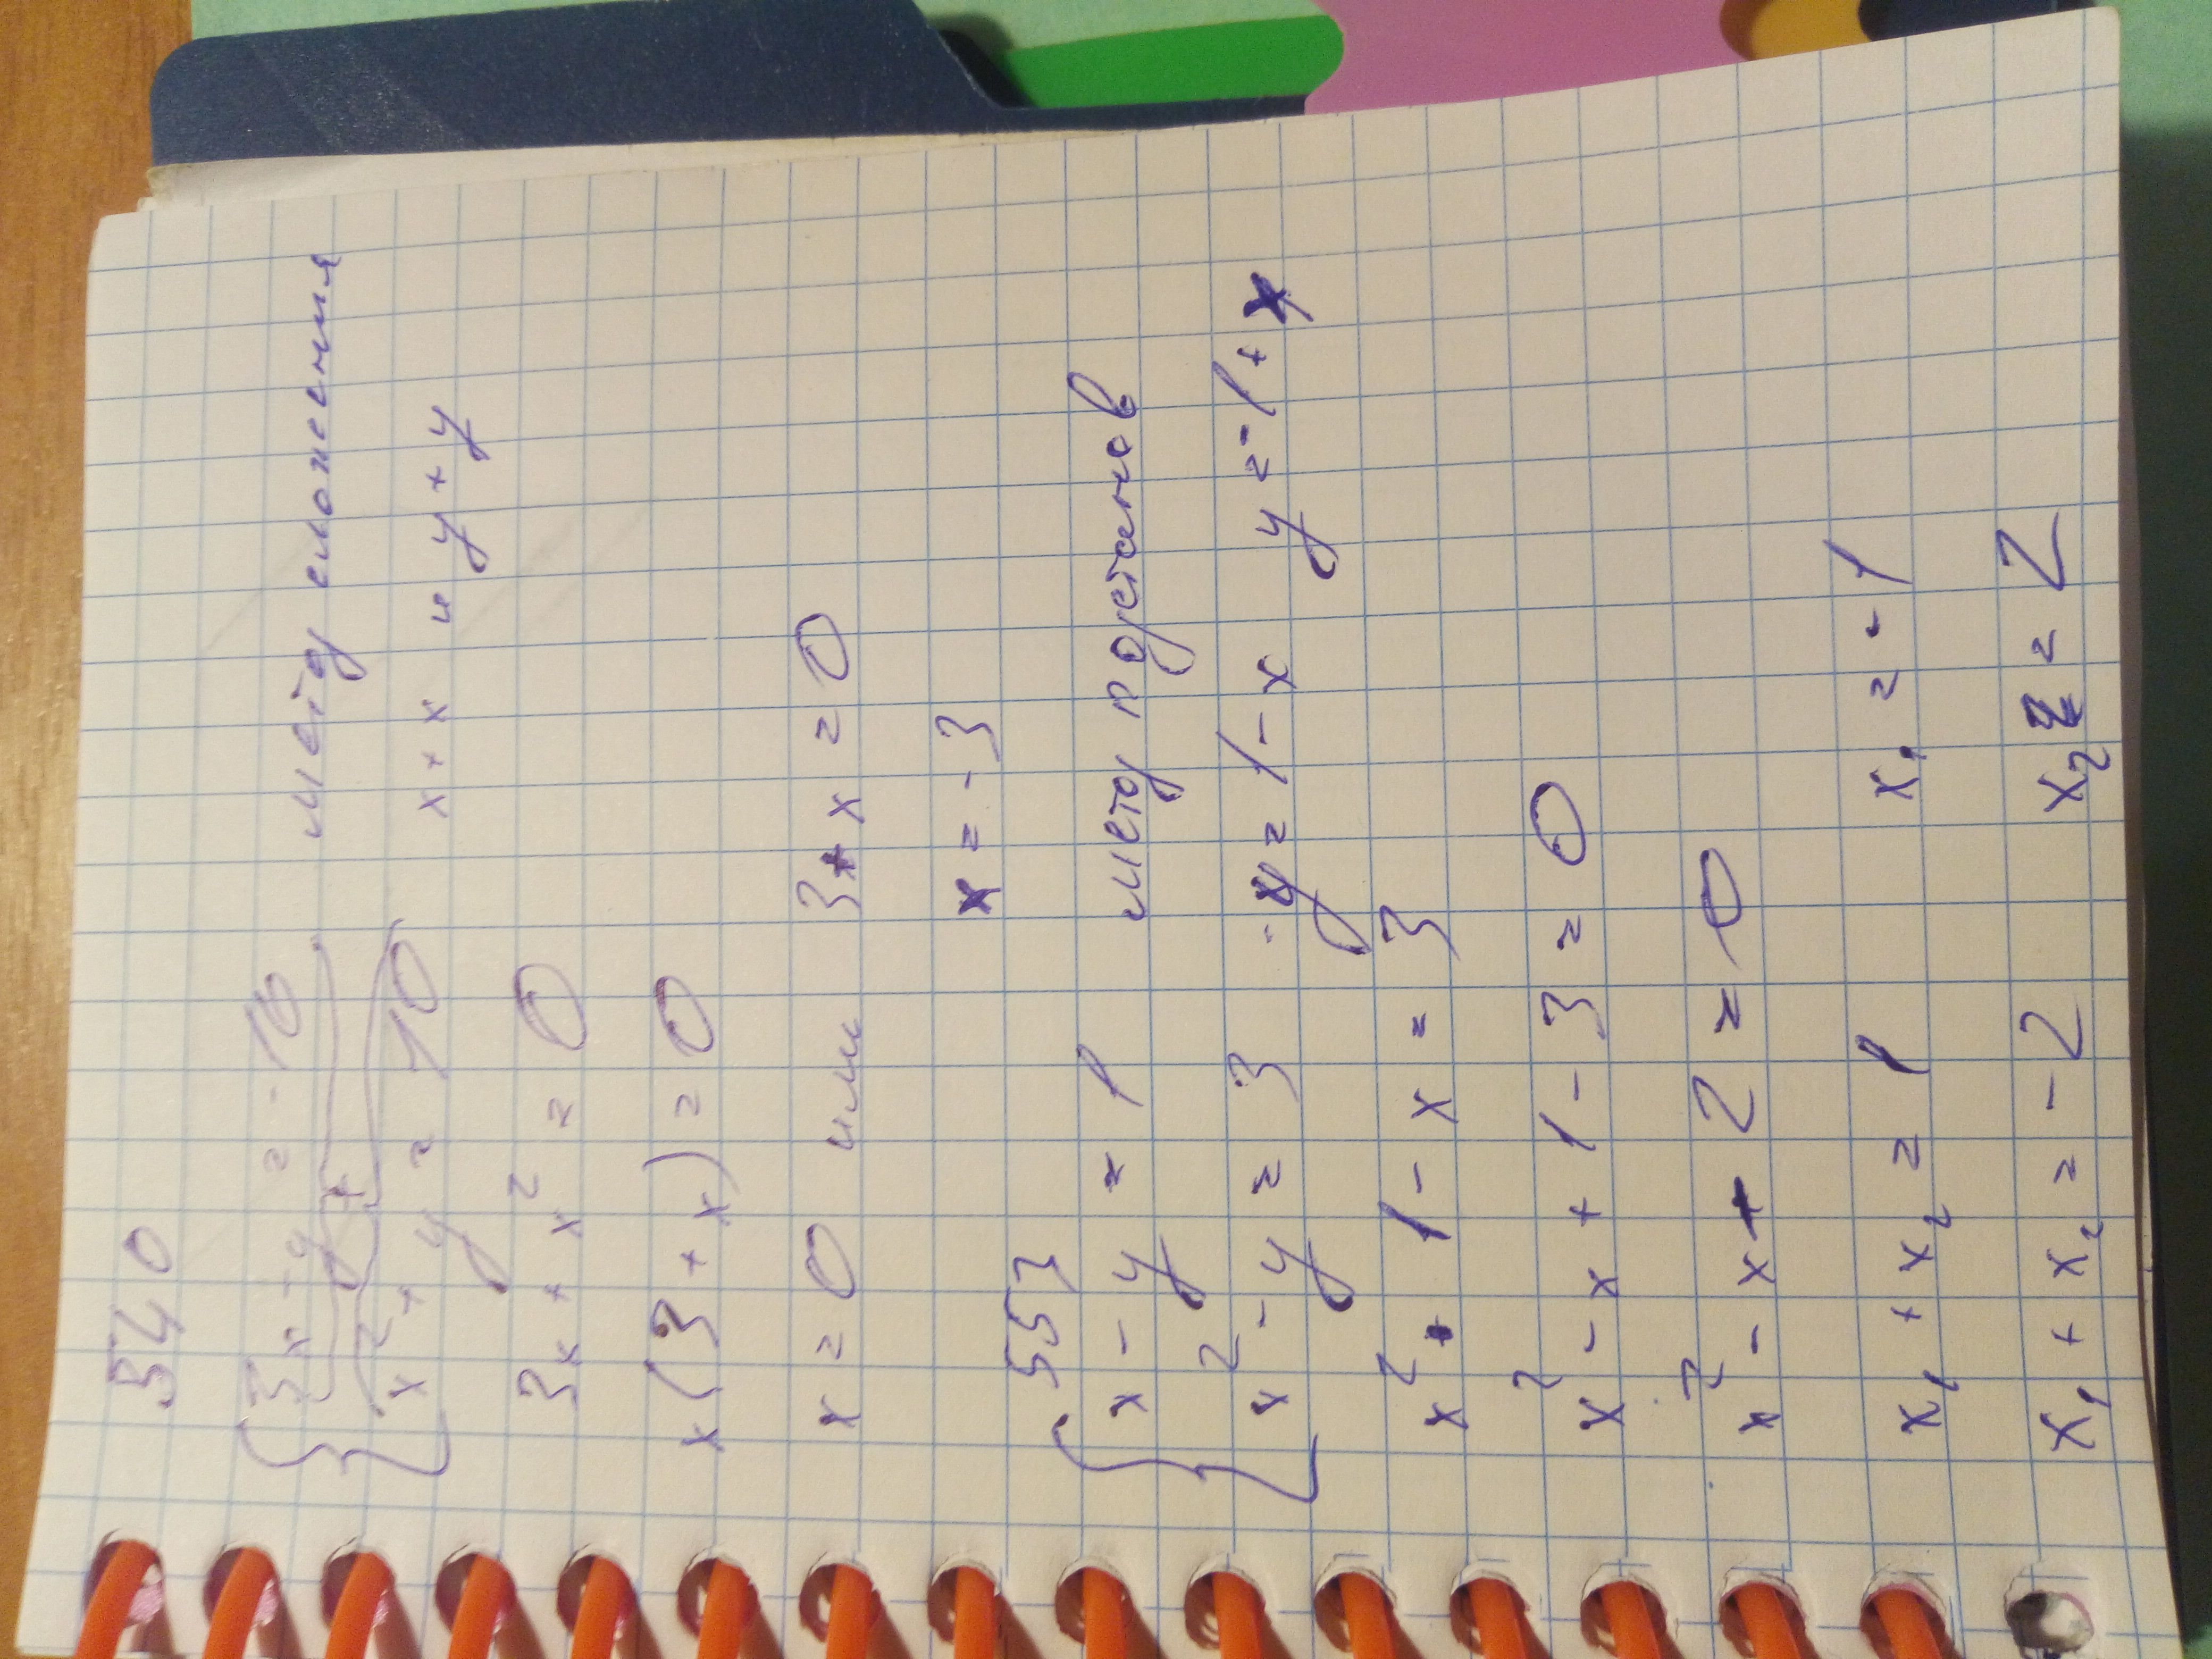 540
3x - y = -10
метод сложения
x² + y = 10
x + x и y + y
3x + x² = 0
x(3 + x) = 0
x = 0 или 3 + x = 0
x = -3
557
x - y = 1 метод подстанов
x² - y = 3 -y = 1 - x y = -1 + x
x² + 1 - x = 3
x² - x + 1 - 3 = 0
x² - x + 2 = 0
x₁ + x₂ = 1 x₁ = -1
x₁ + x₂ = -2 x₂ = 2